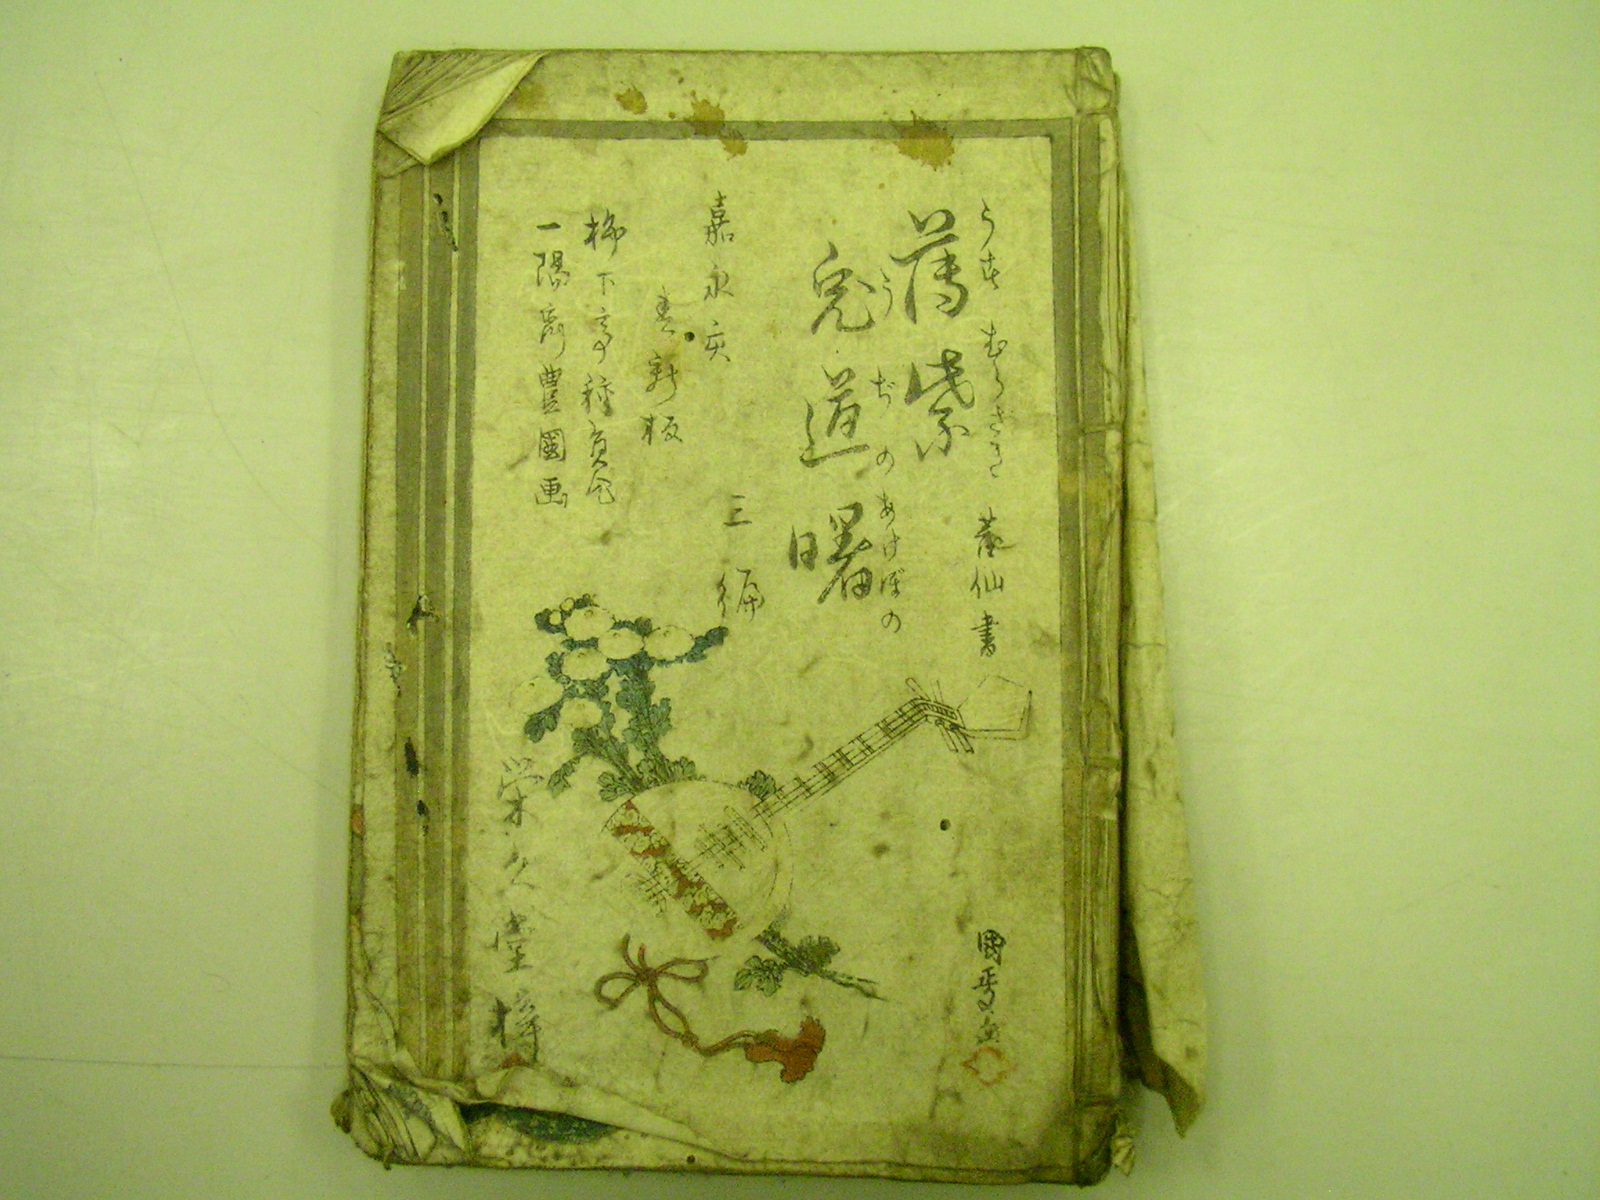 うす むらさき
薄紫
うぢのあけぼの
兎道曙
仙書
嘉永亥
春新板
三編
柳下亭種員作
一陽齋豊國画
栄久堂梓